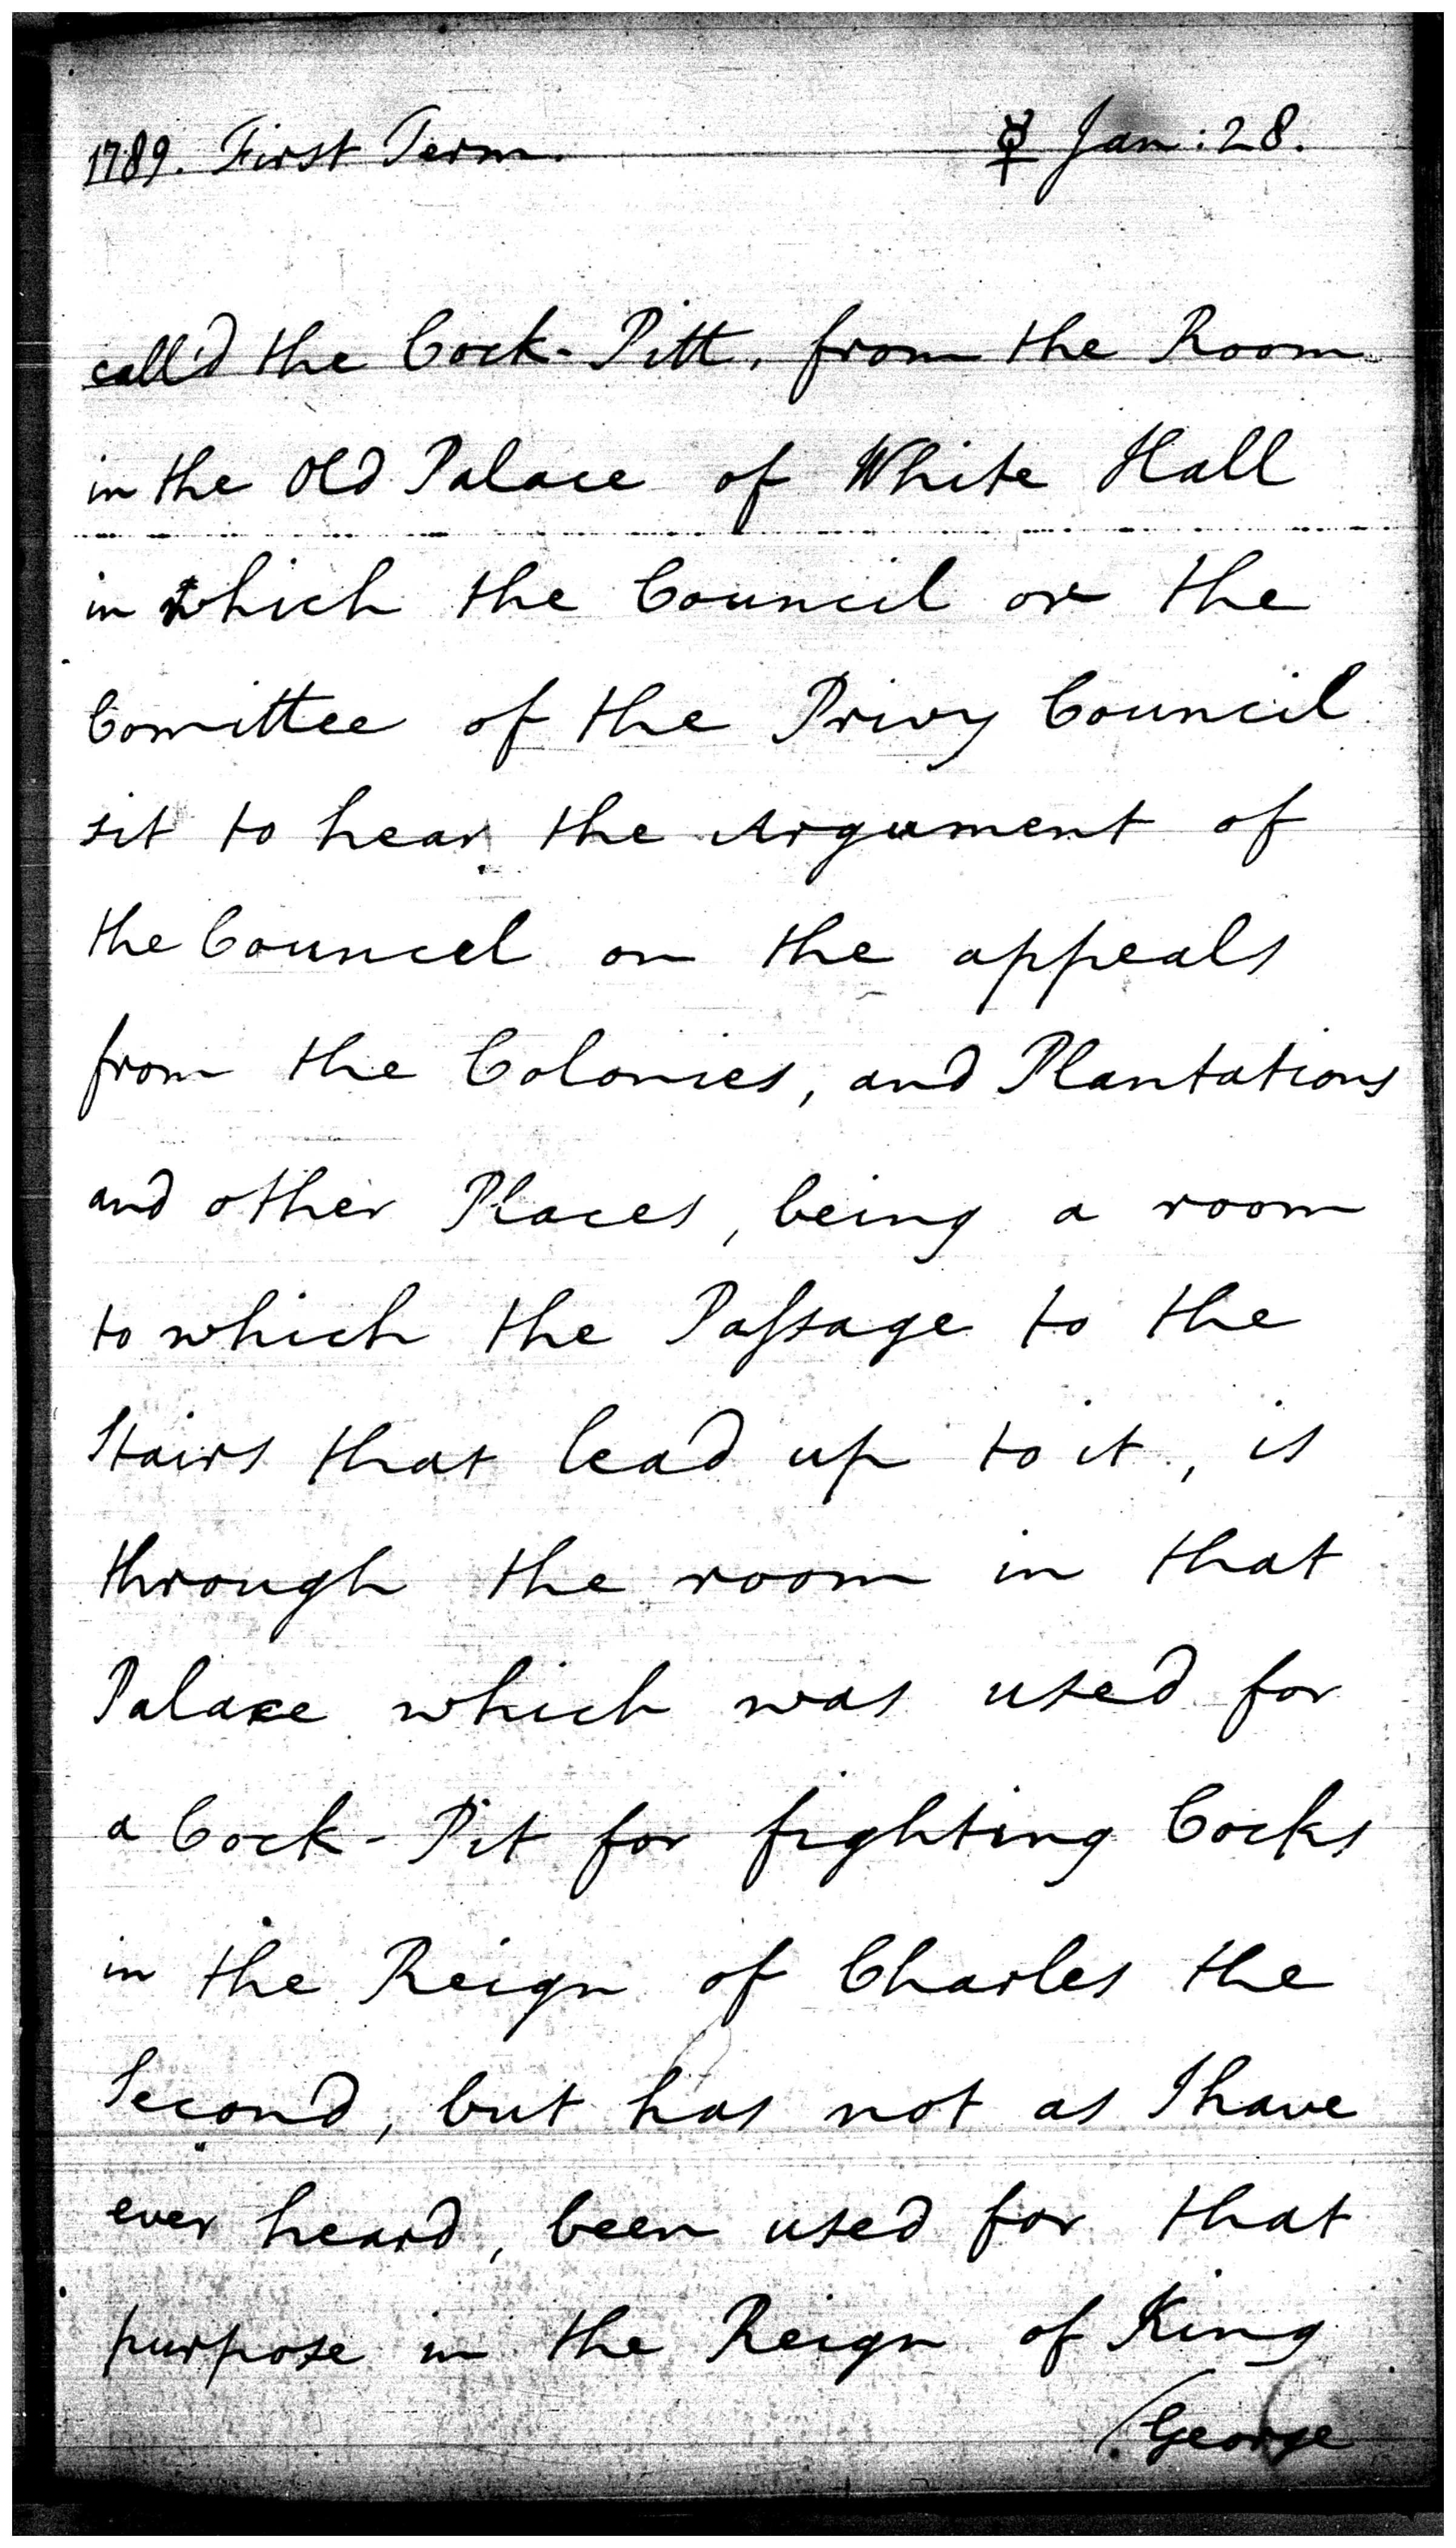 1789. First Term. ☿ Jan: 28.
call'd the Cock-Pitt, from the Room
in the Old Palace of White Hall
in which the Council or the
Comittee of the Privy Council
sit to hear the Argument of
the Councel on the appeals
from the Colonies, and Plantations
and other Places, being a room
to which the Paſsage to the
Stairs that lead up to it, is
through the room in that
Palace which was used for
a Cock-Pit for fighting Cocks
in the Reign of Charles the
Second, but has not as I have
ever heard, been used for that
purpose in the Reign of King
(George